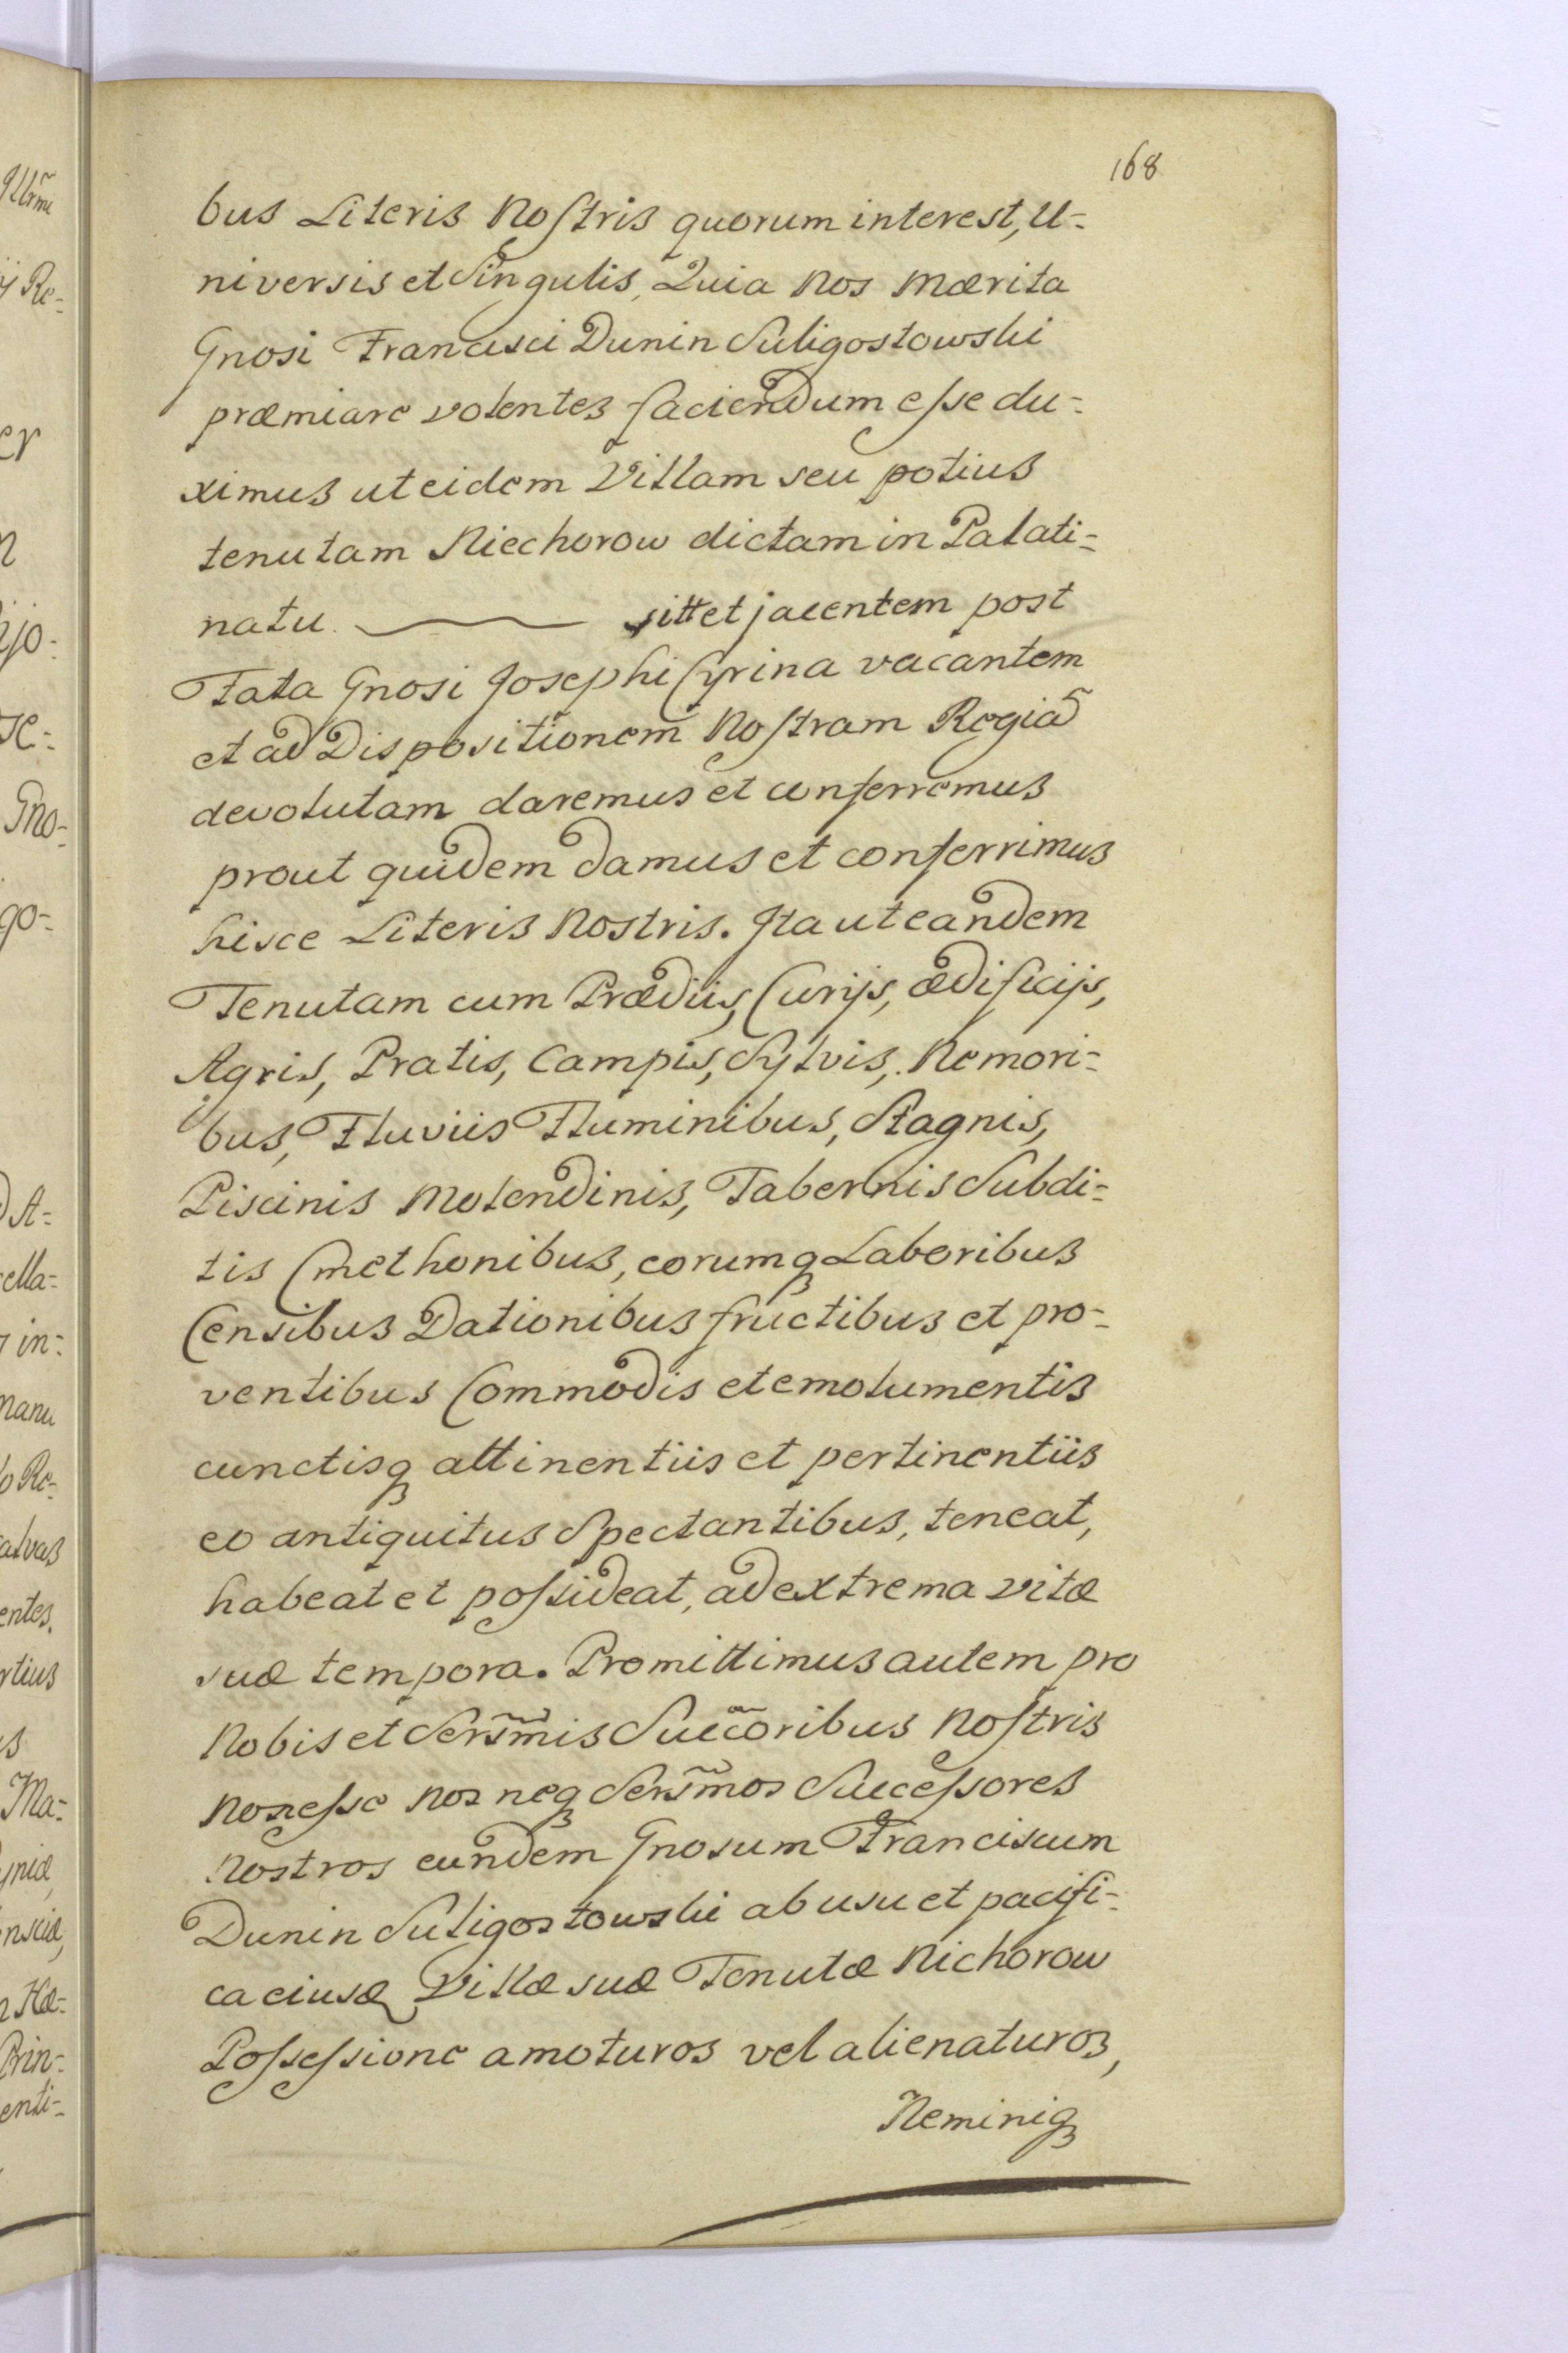 168
bus Literis Nostris quorum interest, U-
niversis et Singulis, Quia Nos Mærita
Gnosi Francisci Dunin Suligostowski
præmiare volentes faciendum esse du-
ximus ut eidem Villam seu potius
tenutam Niechorow dictam in Palati-
natu. ——— sitt et jacentem post
Fata Gnosi Josephi Cyrina vacantem
et ad Dispositionem Nostram Regiã
devolutam daremus et conferremus
prout quidem damus et conferrimus
hisce Literis Nostris. Ita ut eandem
Tenutam cum Prædiis, Curijs, ædificijs,
Agris, Pratis, Campis, Sylvis, Nemori-
bus, Fluviis Fluminibus, Stagnis,
Piscinis Molendinis, Tabernis Subdi-
tis Cmethonibus, eorumq Laboribus
Censibus Dationibus fructibus et pro-
ventibus Commodis et emolumentis
cunctisq attinentiis et pertinentiis
eo antiquitus Spectantibus, teneat,
habeat et possideat, ad extrema vitæ
suæ tempora. Promittimus autem pro
Nobis et Serm̃is Succ̃oribus Nostris
Non esse nos neq Serm̃os Successores
Nostros eundem Gnosum Franciscum
Dunin Suligostowski ab usu et pacifi-
ca eiusdæ Villæ suæ Tenutæ Nichorow
Possessione amoturos vel alienaturos,
Neminiq
Re-
er
n
jo-
se-
Gno-
go-
A-
cella-
in-
manu
Re-
alvas
entes.
rtius
s
Ma-
niæ,
nsciæ,
Hæ-
Prin-
enti-